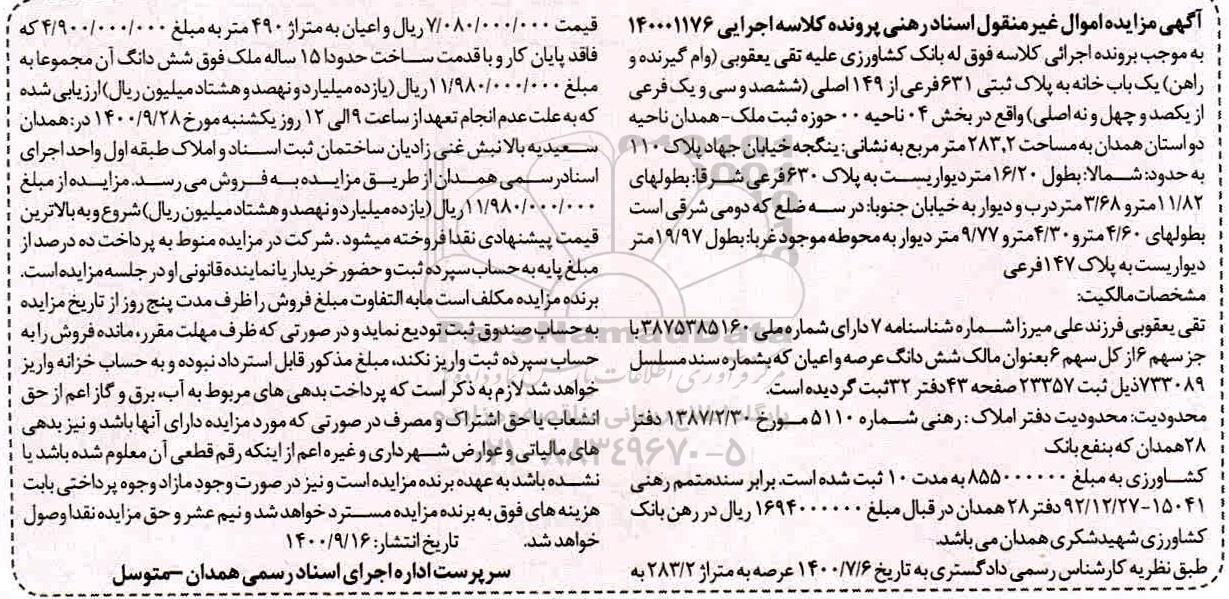 آگهی مزایده اموال غیر منقول اسناد رهنی پرونده کلاسه اجرایی ۱۴۰۰۰۱۱۷۶
به موجب پرونده اجرائی کلاسه فوق له بانک کشاورزی علیه تقی یعقوبی (وام گیرنده و
راهن) یک باب خانه به پلاک ثبتی ۶۳۱فرعی از ۱۴۹ اصلی (ششصد و سی و یک فرعی
از یکصد و چهل و نه اصلی) واقع در بخش ۰۴ ناحیه ۰۰ حوزه ثبت ملک-همدان ناحیه
دو استان همدان به مساحت ۲۸۳٫۲ متر مربع به نشانی: ینگجه خیابان جهاد پلاک ۱۱۰
به حدود: شمالا: بطول ۱۶/۲۰ متر دیواریست به پلاک ۶۳۰فرعی شرقا: بطولهای
۱۱/۸۲مترو ۳/۶۸ متر درب و دیوار به خیابان جنوبا: در سه ضلع که دومی شرقی است
بطولهای ۴/۶۰ مترو ۴/۳۰مترو ۹/۷۷ متر دیوار به محوطه موجود غربا: بطول ۱۹/۹۷متر
دیواریست به پلاک ۱۴۷فرعی
مشخصات مالکیت:
تقی یعقوبی فرزند علی میرزا شماره شناسنامه ۷ دارای شماره ملی ۳۸۷۵۳۸۵۱۶۰ با
جز سهم ۶از کل سهم ۶بعنوان مالک شش دانگ عرصه و اعیان که بشماره سند مسلسل
۷۳۳۰۸۹ذیل ثبت ۲۳۳۵۷ صفحه ۴۳دفتر ۳۲ثبت گردیده است.
محدودیت: محدودیت دفتر املاک : رهنی شماره ۵۱۱۰ مورخ ۱۳۸۷/۲/۳۰ دفتر
۲۸همدان که بنفع بانک
کشاورزی به مبلغ ۸۵۵۰۰۰۰۰۰ به مدت ۱۰ ثبت شده است. برابر سند متمم رهنی
۱۵۰۴۱-۹۲/۱۲/۲۷ دفتر ۲۸ همدان در قبال مبلغ ۱۶۹۴۰۰۰۰۰۰ ریال در رهن بانک
کشاورزی شهید شکری همدان می باشد.
طبق نظریه کارشناس رسمی دادگستری به تاریخ ۱۴۰۰/۷/۶ عرصه به متراژ ۲۸۳/۲ به
قیمت ۷/۰۸۰/۰۰۰/۰۰۰ ریال و اعیان به متراژ ۴۹۰ متر به مبلغ ۴/۹۰۰/۰۰۰/۰۰۰ که
فاقد پایان کار و با قدمت ساخت حدودا ۱۵ ساله ملک فوق شش دانگ آن مجموعا به
مبلغ ۱۱/۹۸۰/۰۰۰/۰۰۰ریال (یازده میلیارد و نهصد و هشتاد میلیون ریال) ارزیابی شده
که به علت عدم انجام تعهد از ساعت ۹ الی ۱۲ روز یکشنبه مورخ ۱۴۰۰/۹/۲۸ در: همدان
سعیدیه بالا نبش غنی زادیان ساختمان ثبت اسناد و املاک طبقه اول واحد اجرای
اسناد رسمی همدان از طریق مزایده به فروش می رسد. مزایده از مبلغ
۱۱/۹۸۰/۰۰۰/۰۰۰ریال (یازده میلیارد و نهصد و هشتاد میلیون ریال) شروع و به بالاترین
قیمت پیشنهادی نقدا فروخته میشود . شرکت در مزایده منوط به پرداخت ده درصد از
مبلغ پایه به حساب سپرده ثبت و حضور خریدار یا نماینده قانونی او در جلسه مزایده است.
برنده مزایده مکلف است مابه التفاوت مبلغ فروش را ظرف مدت پنج روز از تاریخ مزایده
به حساب صندوق ثبت تودیع نماید و در صورتی که ظرف مهلت مقرر، مانده فروش را به
حساب سپرده ثبت واریز نکند، مبلغ مذکور قابل استرداد نبوده و به حساب خزانه واریز
خواهد شد لازم به ذکر است که پرداخت بدهی های مربوط به آب، برق و گاز اعم از حق
انشعاب یا حق اشتراک و مصرف در صورتی که مورد مزایده دارای آنها باشد و نیز بدهی
های مالیاتی و عوارض شهرداری و غیره اعم از اینکه رقم قطعی آن معلوم شده باشد یا
نشده باشد به عهده برنده مزایده است و نیز در صورت وجود مازاد وجوه پرداختی بابت
هزینه های فوق به برنده مزایده مسترد خواهد شد و نیم عشر و حق مزایده نقدا وصول
خواهد شد. تاریخ انتشار: ۱۴۰۰/۹/۱۶
سرپرست اداره اجرای اسناد رسمی همدان -متوسل
ParsNamadData
۰۲۱-۸۸۳۴۹۶۷۰-۵